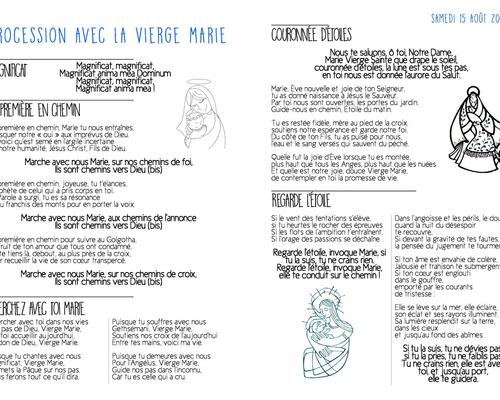 ROCESSION AVEC LA VIERGE MARIE
GNIFICAT
Magnificat, magnificat,
Magnificat anima mea Dominum
Magnificat, magnificat,
Magnificat anima mea !
PREMIÈRE EN CHEMIN
première en chemin, Marie tu nous entraînes,
isquer notre « oui » aux imprévus de Dieu.
voici qu'est semé en l'argile incertaine
notre humanité, Jésus Christ, Fils de Dieu.
Marche avec nous Marie, sur nos chemins de foi,
Ils sont chemins vers Dieu (bis)
première en chemin, joyeuse, tu t'élances,
ophète de celui qui a pris corps en toi.
Parole a surgi, tu es sa résonance
u franchis là monts pour en porter la voix.
Marche avec nous Marie, aux chemins de l'annonce
Ils sont chemins vers Dieu (bis)
première en chemin pour suivre au Golgotha.
fruit de ton amour que tous ont condamné,
te tiens là, debout, au plus près de la croix.
r recueillir la vie de son cœur transpercé.
Marche avec nous Marie, sur nos chemins de croix.
Ils sont chemins vers Dieu (bis)
ERCHEZ AVEC TOI MARIE
rcher avec toi dans nos vies
pas de Dieu, Vierge Marie,
toi accueillir aujourd'hui,
don de Dieu, Vierge Marie.
sque tu chantes avec nous
gnificat, Vierge Marie,
mets la Pâque sur nos pas
s ferons tout ce qu'il dira.
Puisque tu souffres avec nous
Gethsémani, Vierge Marie,
Soutiens nos croix de l'aujourd'hui
Entre tes mains, voici ma vie.
Puisque tu demeures avec nous
Pour l'Angélus, Vierge Marie,
Guide nos pas dans l'inconnu,
Car tu es celle qui a cru.
SAMEDI 15 AOÛT 20
COURONNÉE D'ÉTOILES
Nous te saluons, ô toi, Notre Dame,
Marie Vierge Sainte que drape le soleil,
couronnée d'étoiles, la lune est sous tes pas,
en toi nous est donnée l'aurore du Salut.
Marie, Eve nouvelle et joie de ton Seigneur,
tu as donné naissance à Jésus le Sauveur.
Par toi nous sont ouvertes, les portes du jardin.
Guide-nous en chemin, Étoile du matin.
Tu es restée fidèle, mère au pied de la croix,
soutiens notre espérance et garde notre foi.
Du côté de ton Fils, tu as puisé pour nous,
l'eau et le sang versés qui sauvent du péché.
Quelle fut la joie d'Eve lorsque tu es montée,
plus haut que tous les Anges, plus haut que les nuées
Et quelle est notre joie, douce Vierge Marie,
de contempler en toi la promesse de vie.
REGARDE L'ÉTOILE
Si le vent des tentations s'élève,
si tu heurtes le rocher des épreuves
Si les flots de l'ambition t'entraînent,
Si l'orage des passions se déchaîne
Regarde l'étoile, invoque Marie, si
tu la suis, tu ne crains rien.
Regarde l'étoile, invoque Marie,
elle te conduit sur le chemin !
Dans l'angoisse et les périls, le dou
quand la nuit du désespoir
te recouvre,
Si devant la gravité de tes fautes,
la pensée du jugement te tourmen
Si ton âme est envahie de colère,
Jalousie et trahison te submergen
Si ton cœur est englouti
dans le gouffre,
emporté par les courants
de tristesse :
Elle se lève sur la mer, elle éclaire,
son éclat et ses rayons illuminent.
Sa lumière resplendit sur la terre,
dans les cieux
et jusqu'au fond des abîmes.
Si tu la suis, tu ne dévies pas
si tu la pries, tu ne faiblis pas
Tu ne crains rien, elle est ave
toi et jusqu'au port,
elle te guidera.